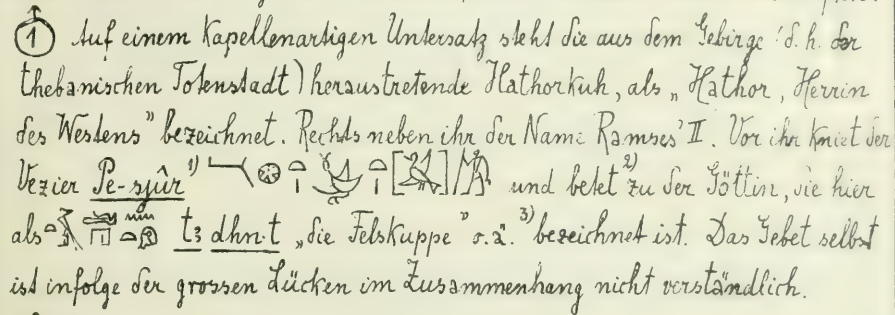 ① Auf einem Kapellenartigen Untersatz steht die aus dem Gebirge (d. h. der
thebanischen Totenstadt) heraustretende Hathorkuh, als „Hathor, Herrin
des Westens" bezeichnet. Rechts neben ihr der Name Ramses' II. Vor ihr kniet der
Vezier Pe-sjûr ¹⁾ und betet ²⁾ zu der Göttin, die hier
als tꜣ dhn.t „die Felskuppe" o. ä. ³⁾ bezeichnet ist. Das Gebet selbst
ist infolge der grossen Lücken im Zusammenhang nicht verständlich.